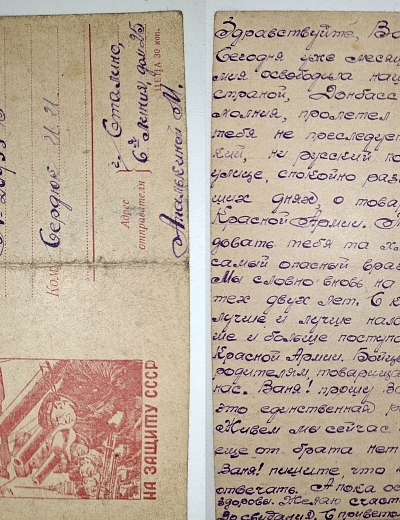 Кому
Сердюк И. И.
Адрес
отправителя
г. Сталино,
6я Линия, дом 25
ЦЕНА 30 коп.
Анапькиной М.
НА ЗАЩИТУ СССР
Здравствуйте, Ва
Сегодня уже месяц
мия освободила наш
страной, Донбасс
молния, пролетел
тебя не преследует
кий, ни русский по
улице, спокойно раз
ших днях, о това
Красной Армии.
довать тебя та
самый опасный враг
Мы словно вновь на
тех двух лет. С к
лучше и лучше нала
ше и больше поступа
Красной Армии. Бойцы
родителям товарища
нас. Ваня! прошу Ва
это единственная ра
Живем мы сейчас
еще от брата нет
Ваня! пишите, что
отвечать. А пока ос
здоровы. Желаю счаст
До свидания. С приветом